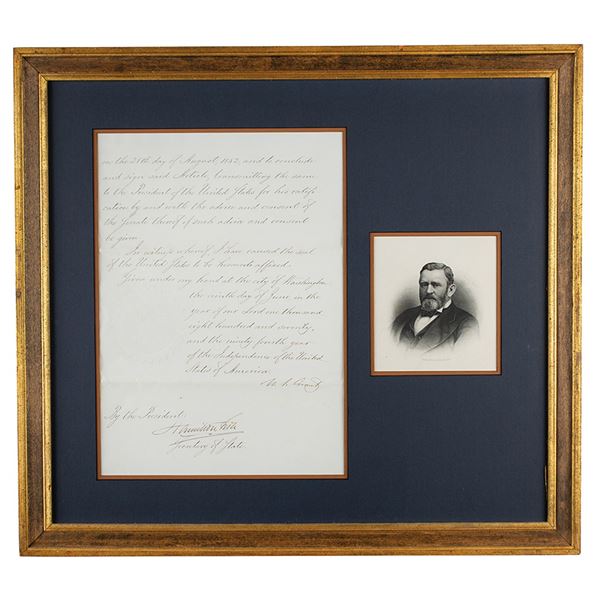 on the 29th day of August, 1842, and to conclude
and sign said Article, transmitting the same
to the President of the United States for his ratifi-
cation by and with the advice and consent of
the Senate thereof if such advice and consent
be given.
In witness whereof I have caused the seal
of the United States to be hereunto affixed.
Given under my hand at the city of Washington
the ninth day of June in the
year of our Lord one thousand
eight hundred and seventy,
and the ninety fourth year
of the Independence of the United
States of America.
U. S. Grant
By the President:
Hamilton Fish
Secretary of State.